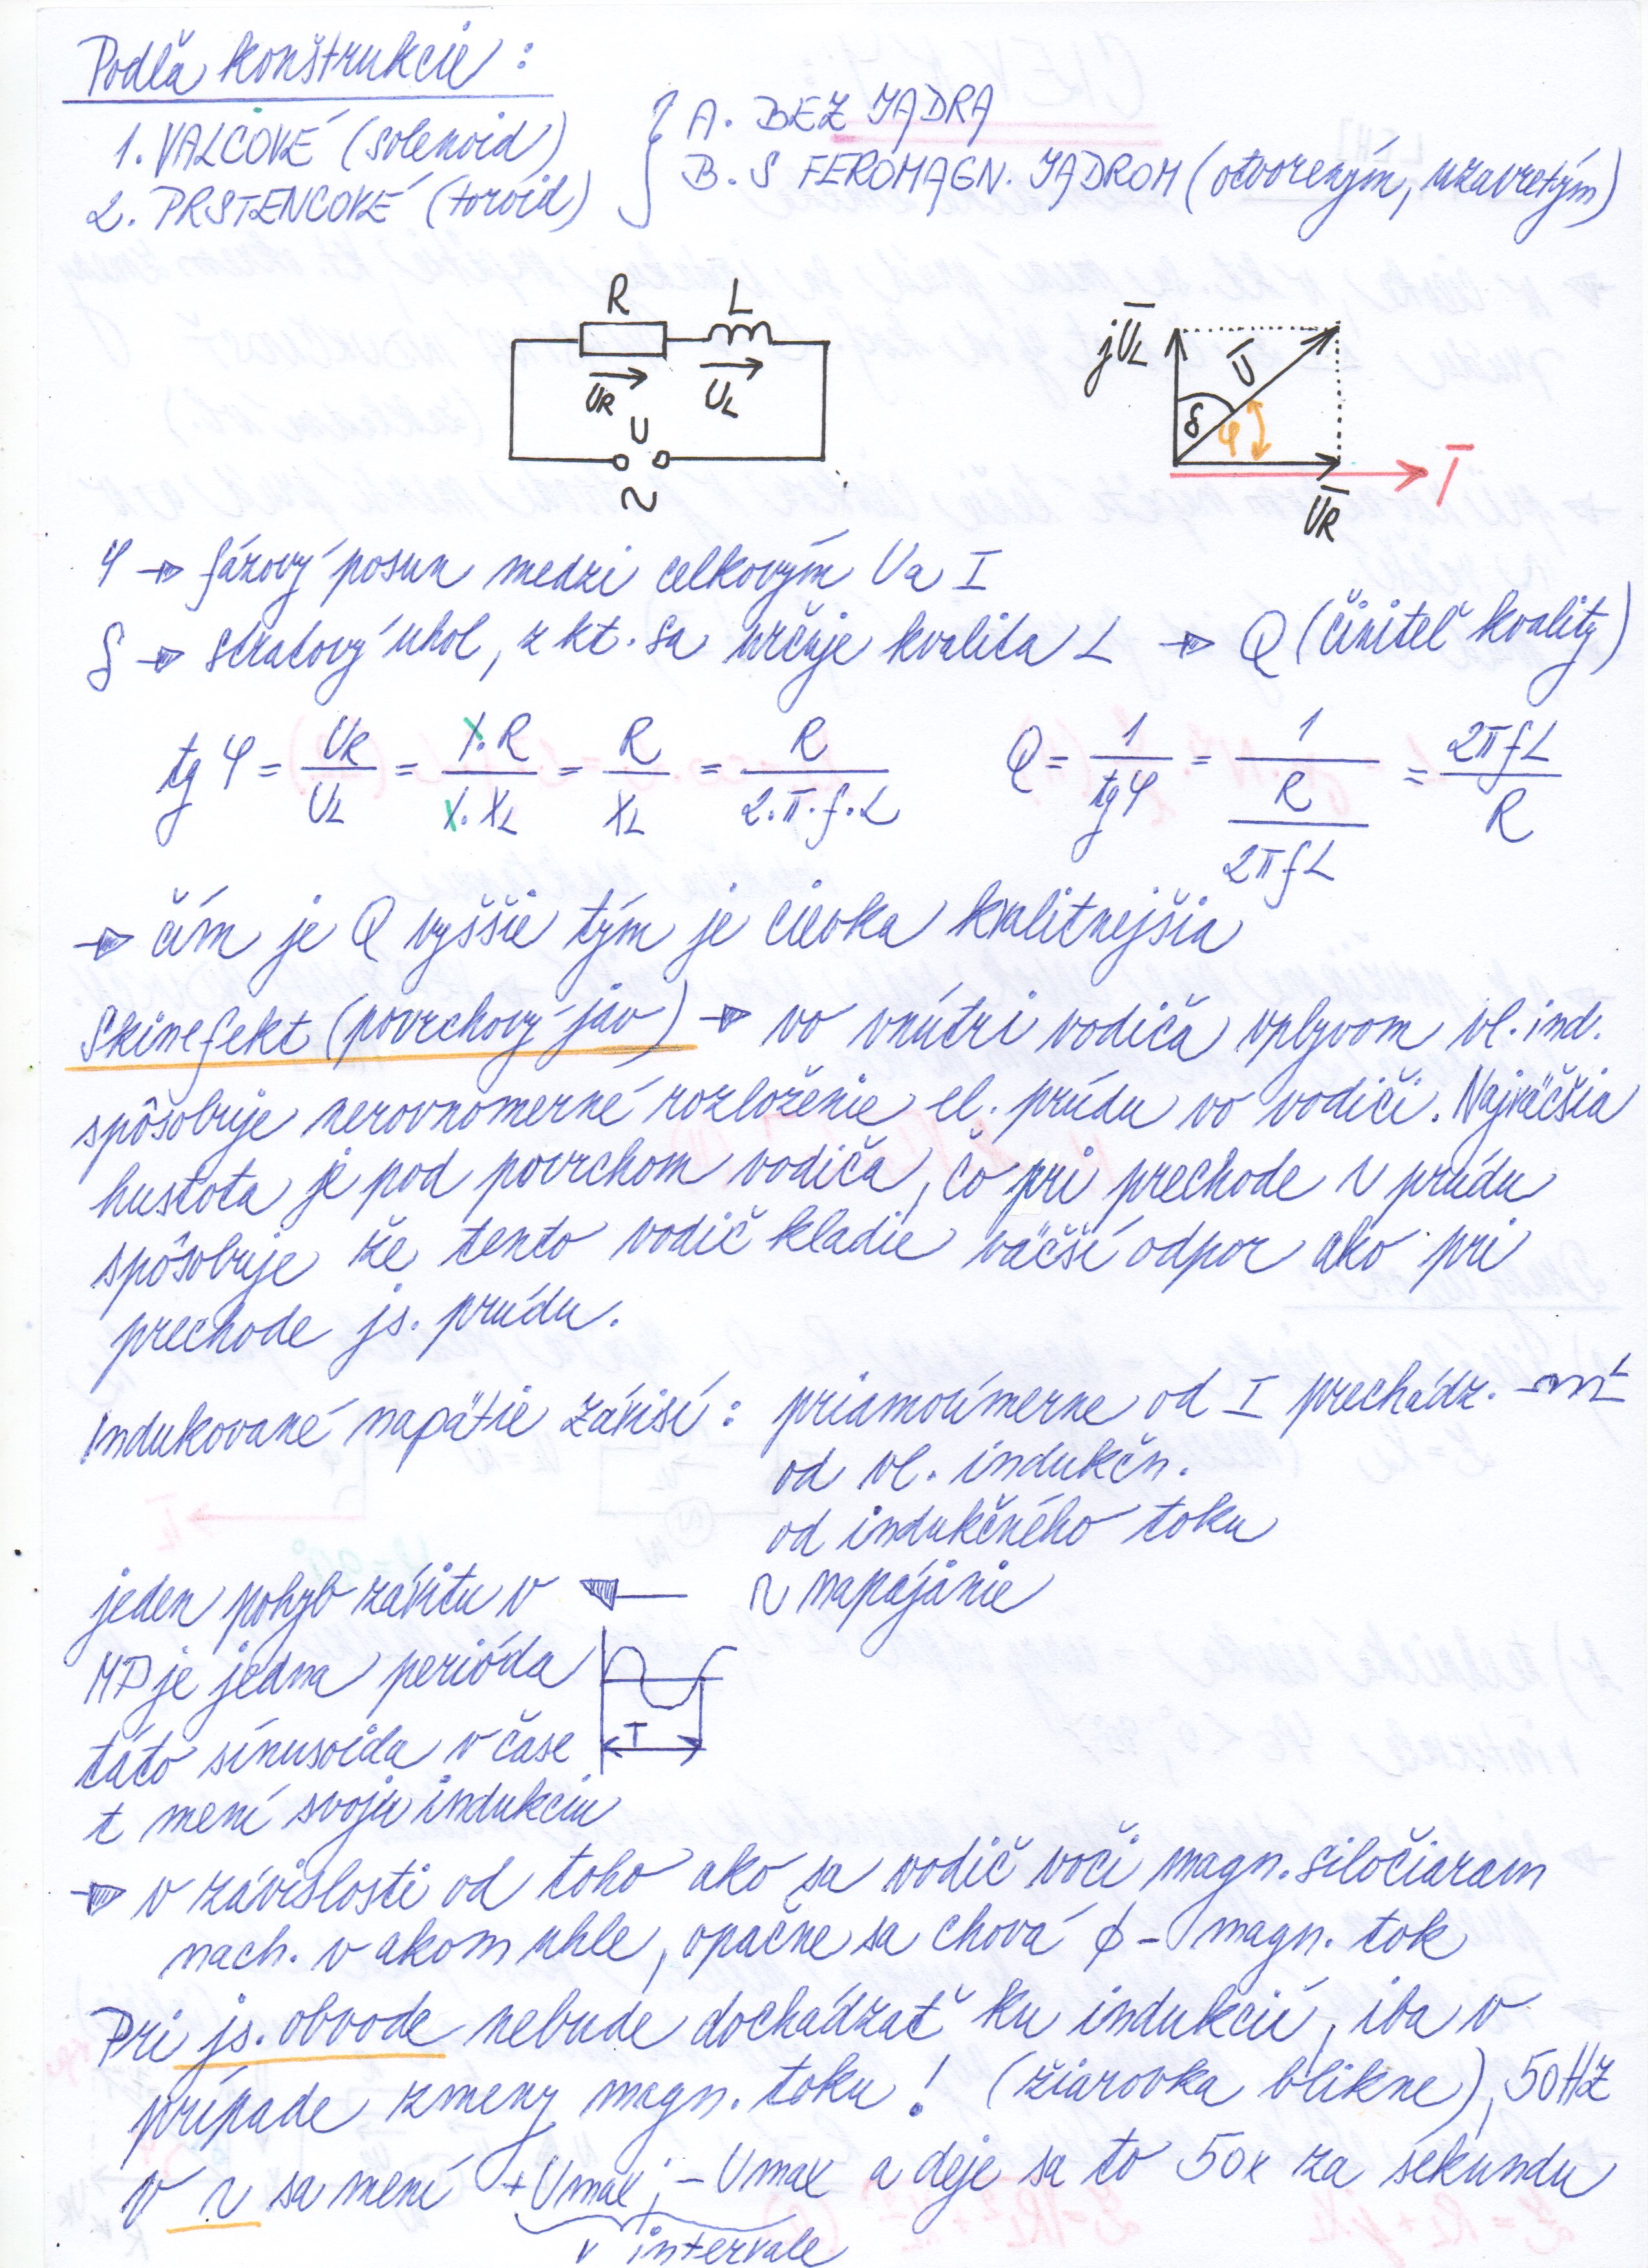 Podľa konštrukcie:
1. VALCOVÉ (solenoid)
2. PRSTENCOVÉ (toroid)
A. BEZ JADRA
B. S FEROMAGN. JADROM (otvoreným, uzavretým)
R L
UR UL
U
~
jUL U
δ φ
I
UR
φ → fázový posun medzi celkovým U a I
δ → stratový uhol, z kt. sa určuje kvalita L → Q (činiteľ kvality)
tg φ = UR/UL = I.R/I.XL = R/XL = R/2.π.f.L
Q = 1/tgφ = 1/(R/2πfL) = 2πfL/R
→ čím je Q vyššie tým je cievka kvalitnejšia
Skinefekt (povrchový jav) → vo vnútri vodiča vplyvom vl. ind.
spôsobuje nerovnomerné rozloženie el. prúdu vo vodiči. Najväčšia
hustota je pod povrchom vodiča, čo pri prechode ~ prúdu
spôsobuje že tento vodič kladie väčší odpor ako pri
prechode js. prúdu.
Indukované napätie závisí: priamoúmerne od I prechádz. L
od vl. indukčn.
od indukčného toku
~ napájanie
jeden pohyb závitu v
MP je jedna perióda
táto sínusoida v čase
t mení svoju indukciu
T
→ v závislosti od toho ako sa vodič voči magn. siločiaram
nach. v akom uhle, opačne sa chová ϕ - magn. tok
Pri js. obvode nebude dochádzať ku indukcií, iba v
prípade zmeny magn. toku! (žiarovka blikne), 50HZ
v ~ sa mení +Umax; -Umax a deje sa to 50x za sekundu
v intervale